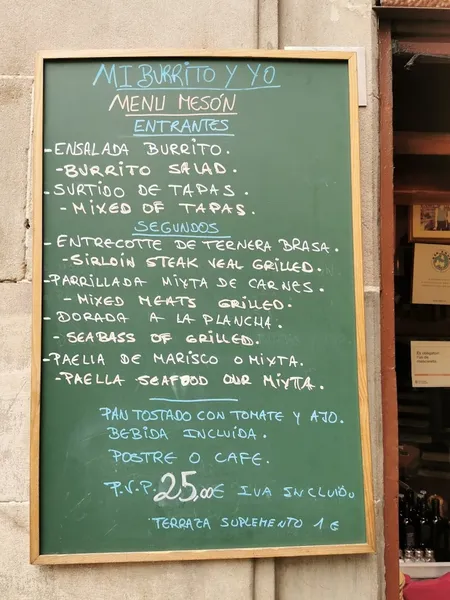 MI BURRITO Y YO
MENU MESÓN
ENTRANTES
-ENSALADA BURRITO.
-BURRITO SALAD.
-SURTIDO DE TAPAS.
-MIXED OF TAPAS.
SEGUNDOS
-ENTRECOTTE DE TERNERA BRASA.
-SIRLOIN STEAK VEAL GRILLED.
-PARRILLADA MIXTA DE CARNES.
-MIXED MEATS GRILLED.
-DORADA A LA PLANCHA.
-SEABASS OF GRILLED.
-PAELLA DE MARISCO O MIXTA.
-PAELLA SEAFOOD OUR MIXTTA.
PAN TOSTADO CON TOMATE Y AJO.
BEBIDA INCLUÍDA.
POSTRE O CAFE.
P.V.P. 25,00€ IVA INCLUIDO
TERRAZA SUPLEMENTO 1€